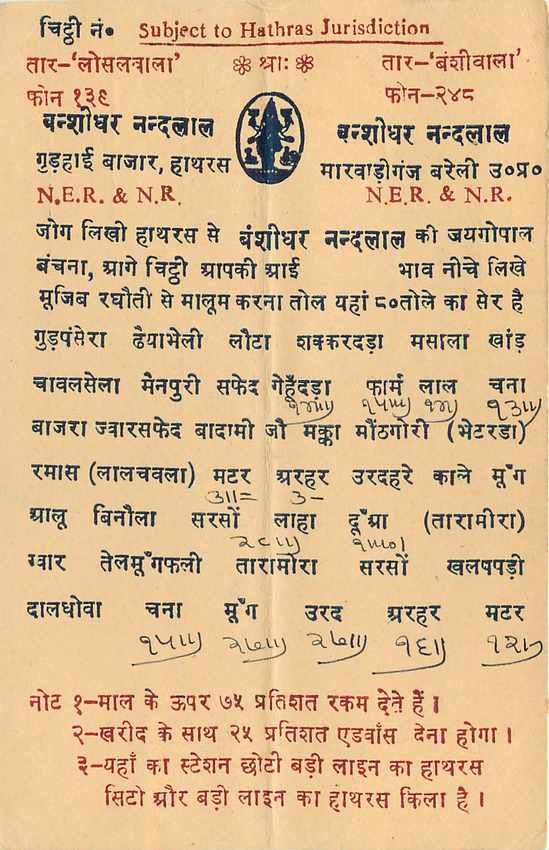 चिट्ठी नं० Subject to Hathras Jurisdiction
तार-'लोसलवाला' श्रा: तार-'बंशीवाला'
फोन १३९ फोन-२४८
बन्शीधर नन्दलाल बन्शीधर नन्दलाल
गुड़हाई बाजार, हाथरस मारवाड़ीगंज बरेली उ०प्र०
N.E.R. & N.R. N.E.R. & N.R.
जोग लिखी हाथरस से बंशीधर नन्दलाल की जयगोपाल
बंचना, आगे चिट्ठी आपकी आई भाव नीचे लिखे
मूजिब रघौती से मालूम करना तोल यहां ८०तोले का सेर है
गुड़पंसेरा ढैयाभेली लौटा शक्करदड़ा मसाला खांड़
चावलसेला मैनपुरी सफेद गेहूँदड़ा फार्म लाल चना
१५॥॥) १३॥)
बाजरा ज्वारसफेद बादामी जौ मक्का मौंठगोरी (भेटरडा)
रमास (लालचवला) मटर अरहर उरदहरे काले मूँग
३॥= ३-
आलू बिनौला सरसों लाहा दूँआ (तारामीरा)
२८॥)
ग्वार तेलमूँगफली तारामीरा सरसों खलषपड़ी
दालधोवा चना मूँग उरद अरहर मटर
१५॥) २७॥) २७॥) १६॥) १२॥)
नोट १-माल के ऊपर ७५ प्रतिशत रकम देते हैं।
२-खरीद के साथ २५ प्रतिशत एडवाँस देना होगा।
३-यहाँ का स्टेशन छोटी बड़ी लाइन का हाथरस
सिटी और बड़ी लाइन का हाथरस किला है।